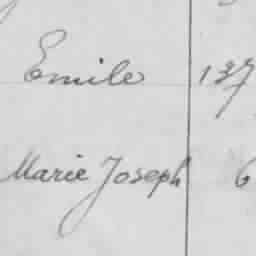 Emile 137
Marie Joseph 6